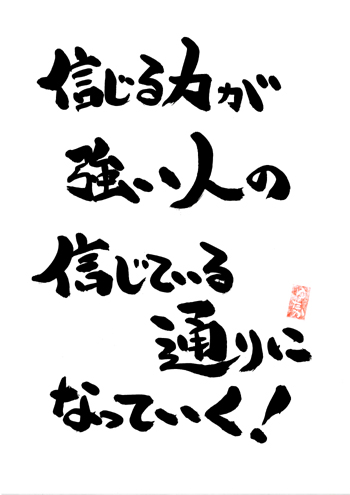 信じる力が
強い人の
信じている
通りに
なっていく！